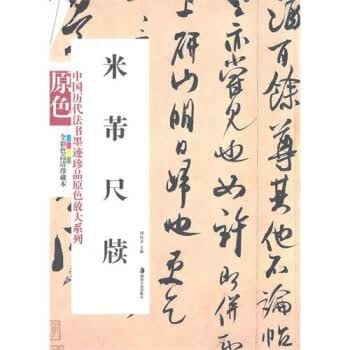 原色
中国历代法书墨迹珍品原色放大系列
全彩色高清珍藏本
米芾尺牍
酒百餘尊其他不論帖
亦嘗見也如許即併
上研山明日歸也更乞